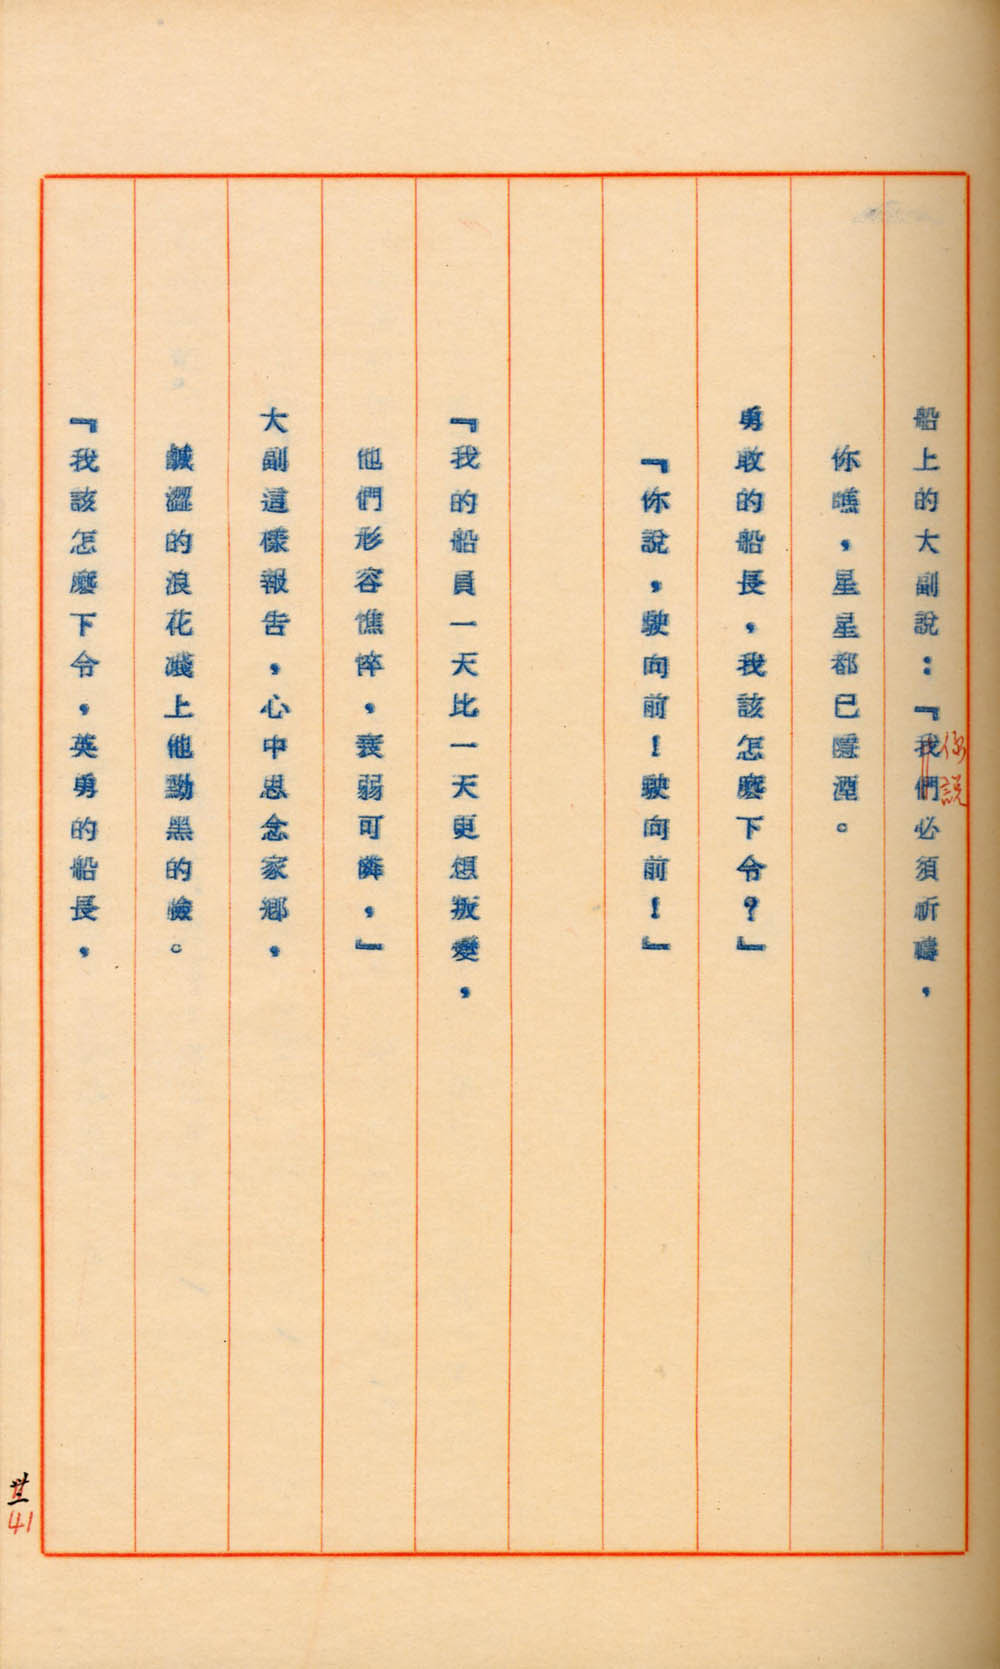 船上的大副說：『我們必須祈禱，
你說
你瞧，星星都已隱湮。
勇敢的船長，我該怎麼下令？』
『你說，駛向前！駛向前！』
『我的船員一天比一天更想叛變，
他們形容憔悴，衰弱可憐，』
大副這樣報告，心中思念家鄉，
鹹澀的浪花濺上他黝黑的臉。
『我該怎麼下令，英勇的船長，
41